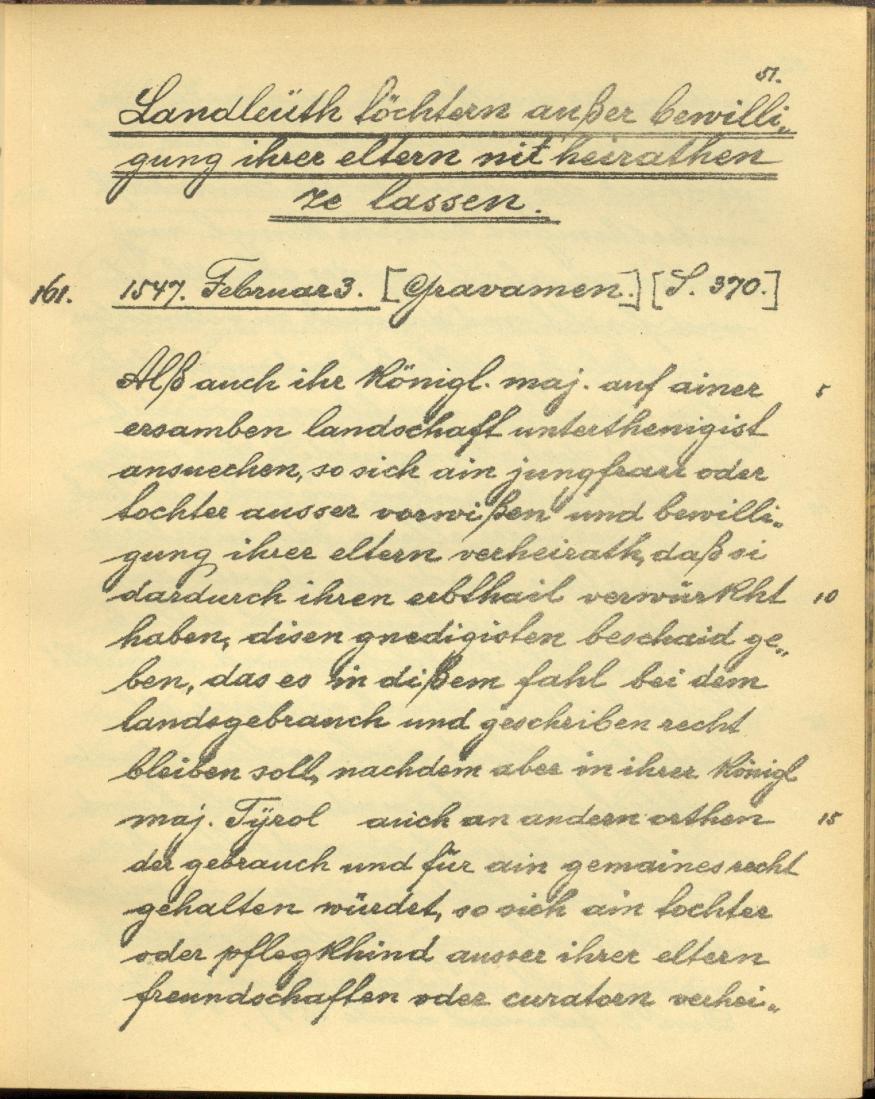 51.
Landleüth töchtern außer bewilli„
gung ihrer eltern nit heirathen
ze lassen.
161. 1547. Februar 3. [Gravamen.] [S. 370.]
Alß auch ihr königl. maj. auf ainer 5
ersamben landschaft unterthenigist
ansuechen, so sich ain jungfrau oder
tochter ausser vorwißen und bewilli„
gung ihrer eltern verheirath, daß si
dardurch ihren erbthail verwürkht 10
haben, disen gnedigisten beschaid ge„
ben, das es in dißem fahl bei dem
landsgebrauch und geschriben recht
bleiben soll, nachdem aber in ihrer königl
maj. Tÿrol auch an andern orthen 15
der gebrauch und für ain gemaines recht
gehalten würdet, so sich ain tochter
oder pflegkhind ausser ihrer eltern
freundschaften oder curatorn verhei„